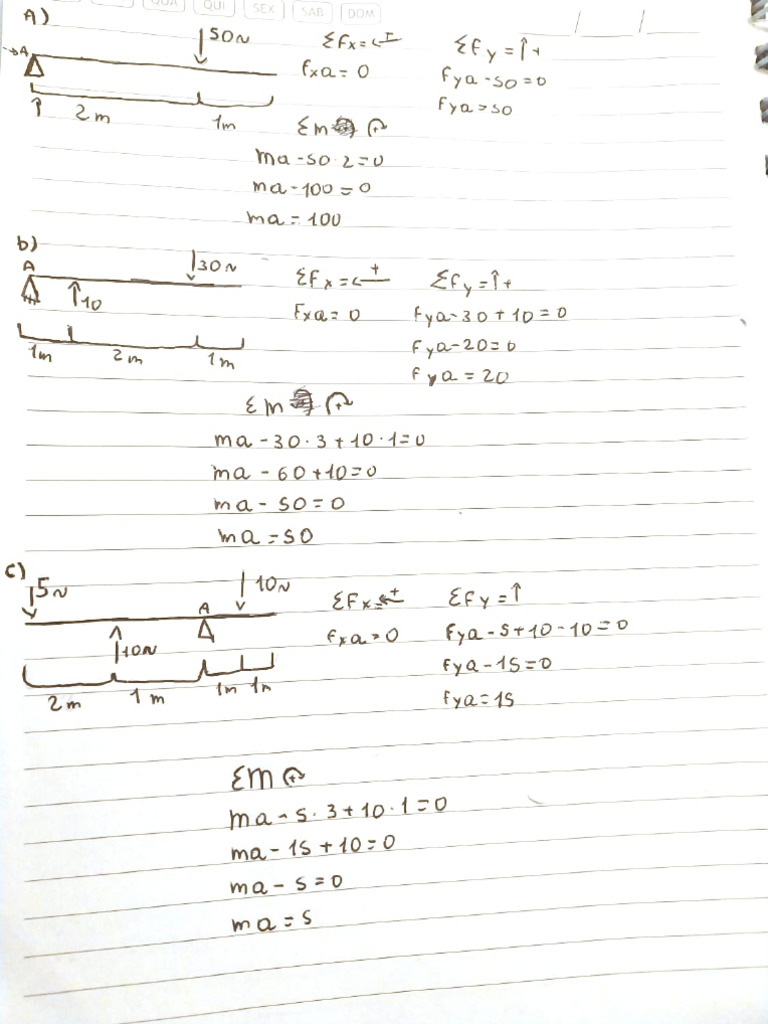 QUA QUI SEX SAB DOM
/ / /
A)
50N
A
2m 1m
ΣFx=
Fxa=0
ΣFy=↑+
Fya-50=0
Fya=50
Σm
ma-50·2=0
ma-100=0
ma=100
b)
A
30N
↑10
1m 2m 1m
ΣFx=←+
Fxa=0
ΣFy=↑+
Fya-30+10=0
Fya-20=0
Fya=20
Σm
ma-30·3+10·1=0
ma-60+10=0
ma-50=0
ma=50
c)
5N
10N
A
10N
2m 1m 1m 1m
ΣFx=←+
Fxa=0
ΣFy=↑
Fya-5+10-10=0
Fya-15=0
Fya=15
Σm
ma-5·3+10·1=0
ma-15+10=0
ma-5=0
ma=5